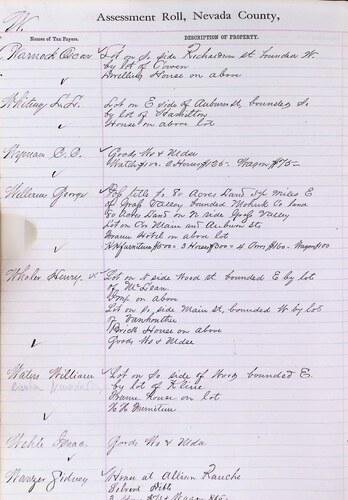 W.
Assessment Roll, Nevada County,
Names of Tax Payers.
DESCRIPTION OF PROPERTY.
Warnock Oscar
Lot on So side Richardson st bounded W.
by lot of Cowen
Dwelling House on above
Whiting L. L.
Lot on E side of Auburn st, bounded So
by lot of Hamilton
House on above lot
Wyman C. C.
Goods Wo & Mdse
Watch $100. 2 Horses $135- Wagon $75-
William George
Pos title to 80 Acres Land 3½ miles E
of Grass Valley bounded Mohawk Co land
80 Acres Land on N side Grass Valley
Lot on Cor Main and Auburn sts
Frame Hotel on above lot
HH furniture $500- 3 Horses $300- 4 Cows $160. Wagon $100
Whaler Henry.
Lot on N side Wood st bounded E by lot
of McLean.
Imp on above
Lot on So, side Main st, bounded W by lot
of
Brick House on above
Goods Wo & Mdse
Waters William
Lot on So side of Wood bounded E.
by lot of Kline
Frame house on lot
H. H. Furniture
Isaac
Goods Wo & Mdse
Sidney
House at Allison Ranche